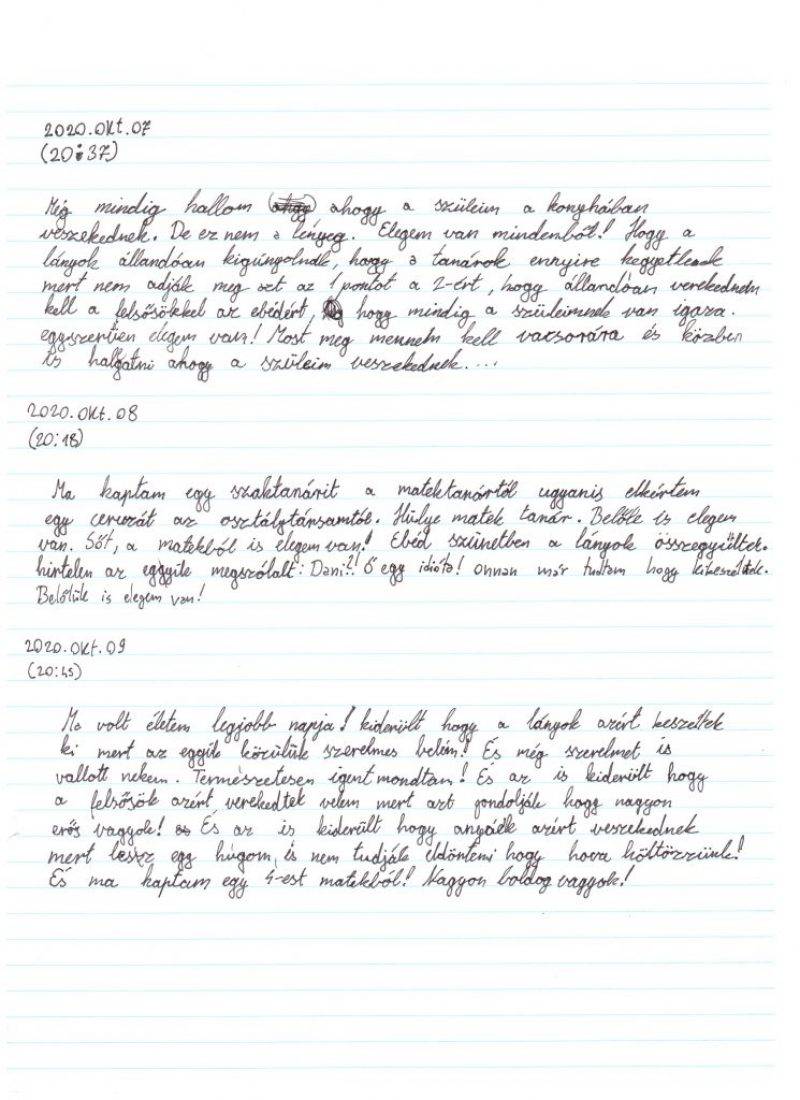 2020.okt.07
(20:37)
Még mindig hallom ahogy a szüleim a konyhában
veszekednek. De ez nem a lényeg. Elegem van mindenből! Hogy a
lányok állandóan kigúnyolnak, hogy a tanárok ennyire kegyetlenek
mert nem adják meg azt az 1 pontot a 2-ért, hogy állandóan verekednem
kell a felsősökkel az ebédért, hogy mindig a szüleimnek van igaza.
egyszerűen elegem van! Most meg mennem kell vacsorára és közben
is halgatni ahogy a szüleim veszekednek....
2020.okt.08
(20:18)
Ma kaptam egy szaktanárit a matektanártól ugyanis elkértem
egy ceruzát az osztálytársamtól. Hülye matek tanár. Belőle is elegem
van. Sőt, a matekból is elegem van! Ebéd szünetben a lányok összegyűltek.
hirtelen az eggyik megszólalt: Dani?! Ő egy idióta! onnan már tudtam hogy kibeszéltek.
Belőlük is elegem van!
2020.okt.09
(20:45)
Ma volt életem legjobb napja! kiderült hogy a lányok azért beszéltek
ki mert az eggyik közülük szerelmes belém! És még szerelmet is
vallott nekem. Természetesen igent mondtam! És az is kiderült hogy
a felsősök azért verekedtek velem mert azt gondolják hogy nagyon
erős vagyok! És az is kiderült hogy anyáék azért veszekednek
mert lessz egy húgom, és nem tudják eldönteni hogy hova költözzünk!
És ma kaptam egy 4-est matekból! Nagyon boldog vagyok!